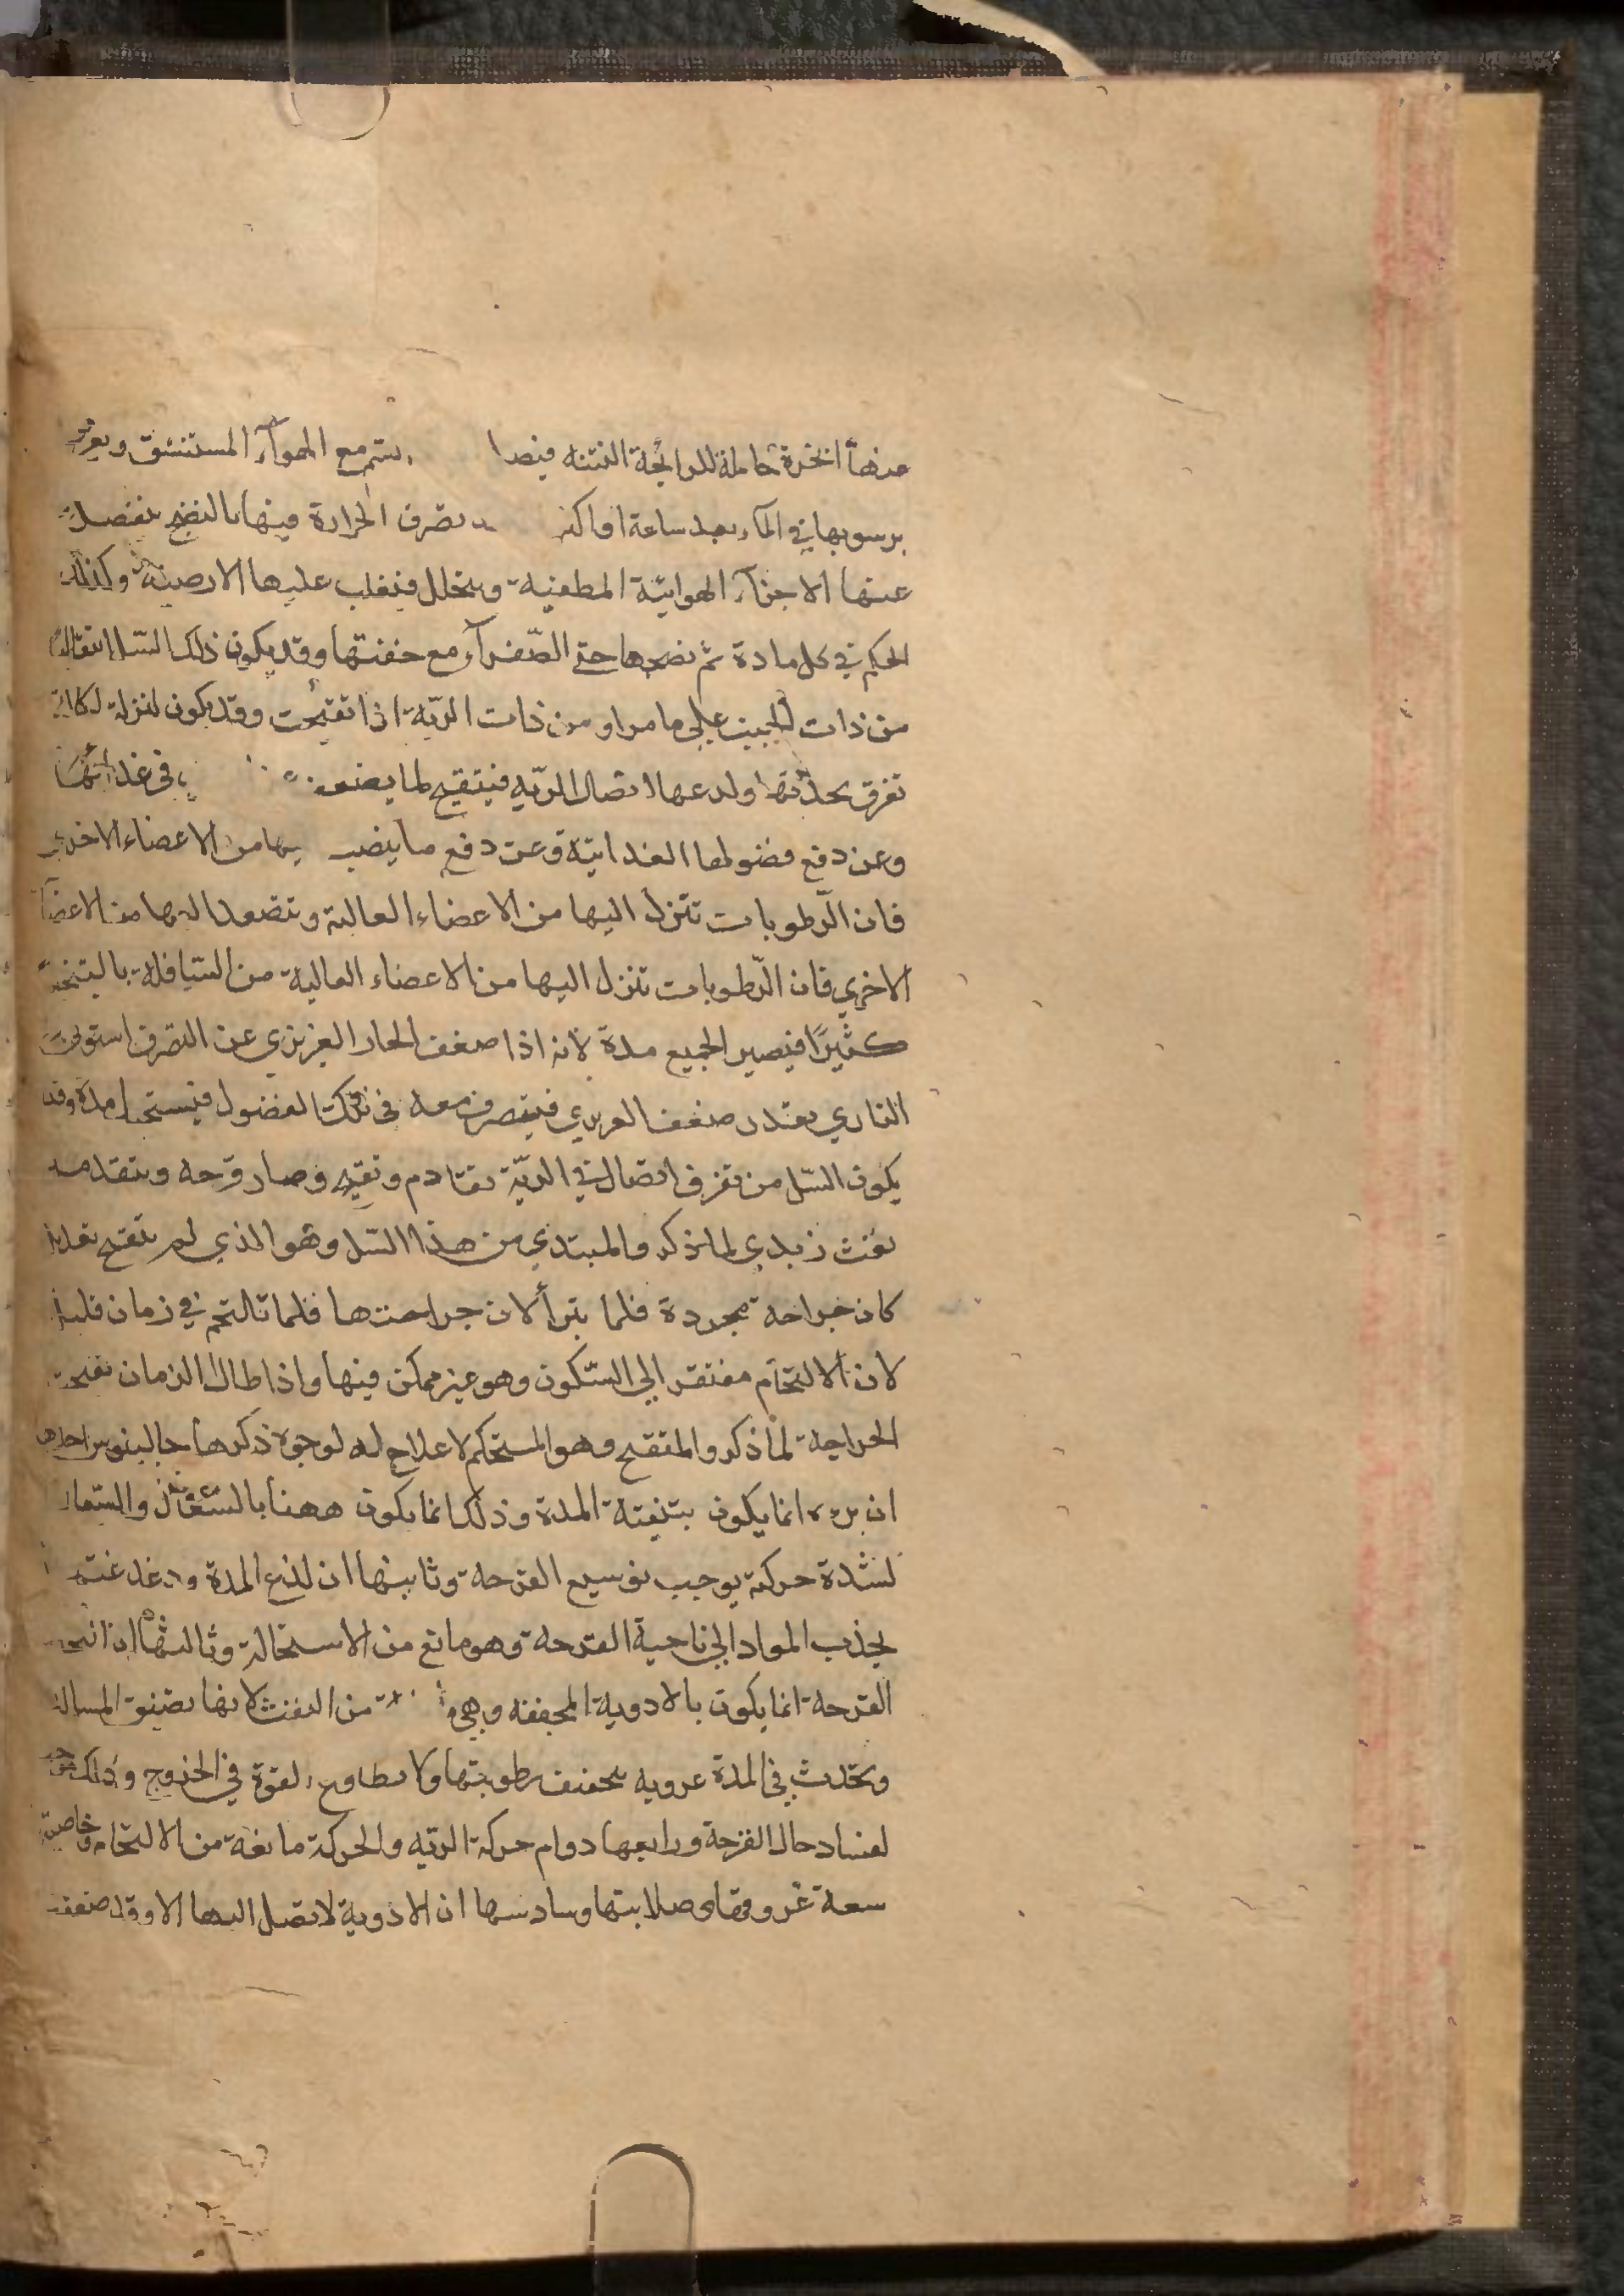 منها ابخرة حاملة للرايحة النتنه فيصا يستم مع الهوآء المستنشق ويعرف
برسوبها في المآء بعد ساعة او اكثر تصرف الحرارة فيها بالنضج ينفصل
عنها الاجزآء الهوائية المطفية ويتحلل فيغلب عليها الارضية وكذلك
الحكم في كل مادة تم نضجها حتى الصّفرآء مع خفتها وقد يكون ذلك السّل انتقاله
من ذات الجنب على ما مر او من ذات الريّة اذا تقيحت وقد يكون لنزلة اكالة
تفرق بحدّتها ولدعها اتصال الريّه فيتقيح لما يضعف في غذائها
وعن دفع فضولها الغدائية وعن دفع ما ينصب يها من الاعضاء الاخرى
فان الرّطوبات تتنزل اليها من الاعضاء العالية وتتصعد اليها من الاعضآء
الاخرى فان الرّطوبات تنزل اليها من الاعضاء العالية من السّافلة بالتبخر
كثيرًا فيصير الجميع مدة لانه اذا ضعف الحار الغريزي عن التصرف استولى
الناري بقدر ضعف الغريزي فيتصرف معه في تلك الفضول فيستحيل مدة وقد
يكون السّل من تفرق اتصال في الريّة تقادم وتقيح وصار قرحه ويتقدمه
نفث زبدي لما ذكر والمبتدي من هذا السّل وهو الذي لم يتقيح بعد اذ
كان جراحة مجردة فلما يبرأ لان جراحتها فلما تالتحم في زمان قليل
لان الالتحام مفتقر الى السّكون وهو غير ممكن فيها واذا طال الزمان تقيحت
الجراحة لما ذكر والمتقيح وهو المستحكم لا علاج له لوجوه ذكرها جالينوس احدها
ان برءه انما يكون بتنقية المدة وذلك انما يكون ههنا بالسّعال والسّعال
لشدة حركته يوجب توسيع القرحة وثانيها ان لذع المدة ودغدغتها
يجذب المواد الى ناحية القرحة وهو مانع من الاستحالة وثالثها ان انجو
القرحة انما يكون بالادوية المجففه وهي من النفث لانها تضيق المسالك
وتحدث في المدة غرويه بتجفيف رطوبتها ولا يطاوع القوة في الخروج وذلك موجب
لفساد حال القرحة ورابعها دوام حركة الريّه والحركة مانعة من الالتحام وخامسها
سعة عروقها وصلابتها وسادسها ان الادوية لا تصل اليها الا وقد ضعفت